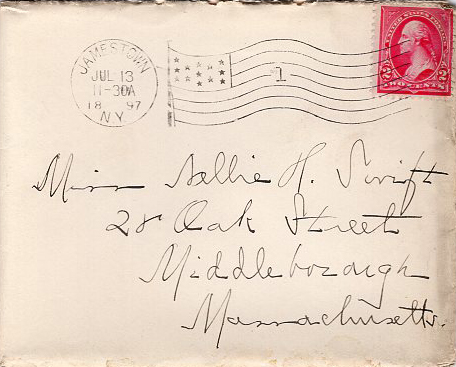 JAMESTOWN
JUL 13
11-30A
18 97
N.Y.
1
UNITED STATES POSTAGE
2 2
TWO CENTS
Miss Nellie H. Swift
28 Oak Street
Middleborough
Massachusetts.